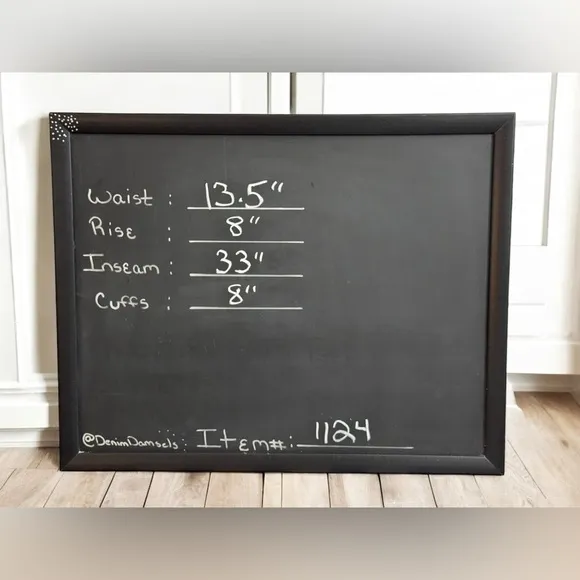 Waist : 13.5"
Rise : 8"
Inseam : 33"
Cuffs : 8"
@DenimDamsels: Item#: 1124